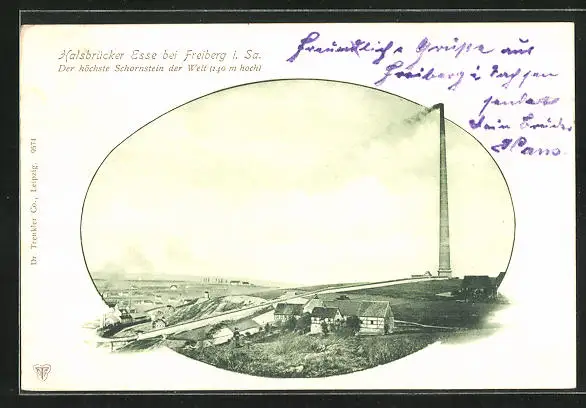 Halsbrücker Esse bei Freiberg i. Sa.
Der höchste Schornstein der Welt (140 m hoch)
Freundliche Grüße aus
Freiberg i Sachsen
sendet
Dein Bruder
Hans.
Dr Trenkler Co., Leipzig. 9571